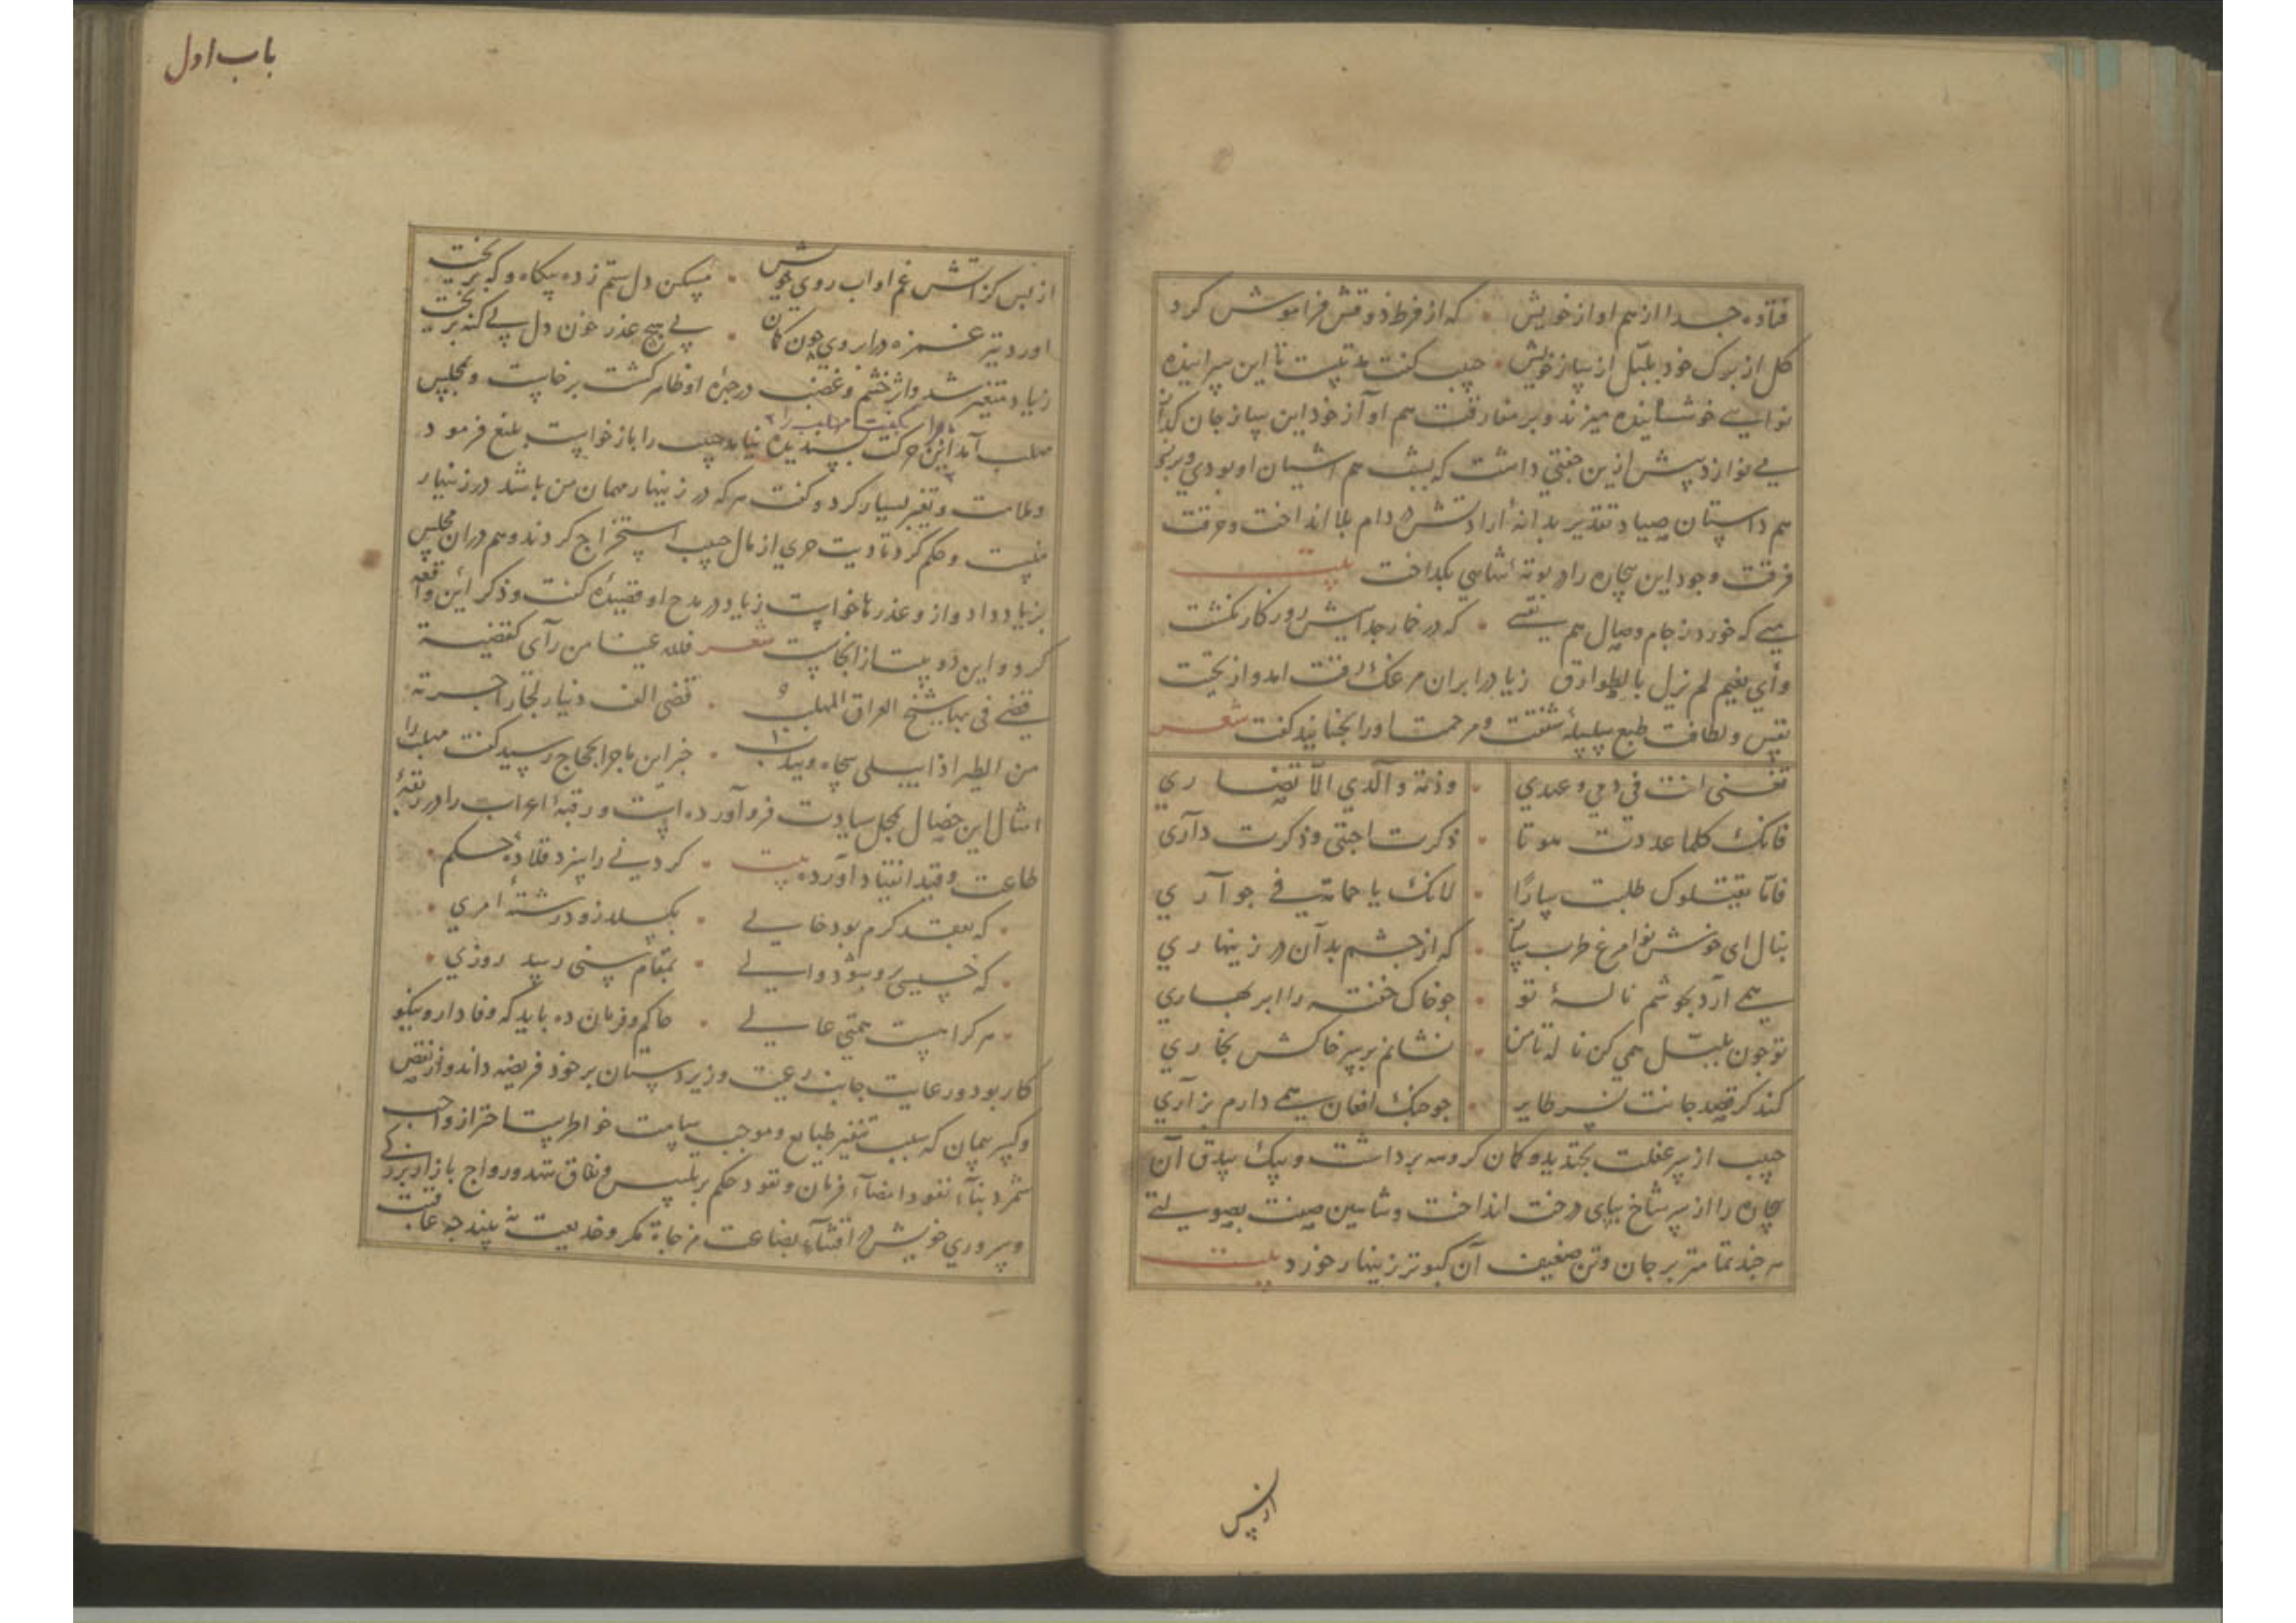 فتاده جدا از هم اواز خویش که از فرط ذوقش فراموش کرد
کل از برک خود بلبل از ساز خویش حبیب کفت بد نیست تا این سراینده
نوایی خوشاینده میزند و بر مفارقت هم آواز خود این ساز جان کداز
می نوازد پیش ازین جفتی داشت که بیشه هم اشیان او بودی و
هم داستان صیاد تقدیر بدانه ارادتش در دام بلا انداخت و حرقت
فرقت وجود این بیچاره را در بوته تنهایی بکداخت بیت
میی که خورد ز جام وصال هم نفسی که در خمار جداییش روزکار نکشت
وأي نعیم لم نزل بالطوارق زیاد را بران مرغک رقت امد و از
نفس و لطافت طبع سلسله شفقت و مرحمت او را بجنبانید کفت شعر
تغنی انت في ذمي وعهدي وذمة والدي الا تضاري
فانك كلما عددت صوتا ذكرت احبتي وذكرت داري
فاما يقتلوك طلبت ثارا لانك يا حمامة في جواري
بنال ای خوش نوا مرغ طرب ساز که از چشم بد آن در زینهاری
همی ارد بجوشم ناله تو جو خاک خفته را ابر بهاری
تو جون بلبل همی کن ناله تا من نشانم بر سر خاکش بخاری
کند کر قصد جانت نسر طایر جو جنک افغان همی دارم بزاری
حبیب از سر غفلت بخندید و کمان کروهه برداشت و بیک بندق آن
بیچاره را از سر شاخ بپای درخت انداخت و شاهین صفت بصولتی
هر جند تمامتر بر جان و تن ضعیف آن کبوتر زینهار خورد بیت
از بس
باب اول
از بس کز اتش غم او اب روی خویش مسکین دل ستم زده بیکاه و که بریخت
اورد تیر غمزه در ابروی چون کمان بی هیچ عذر خون دل بی کنه بریخت
زیاد متغیر شد و اثر خشم و غضب در جبره او ظاهر کشت برخاست و بمجلس
مهلب آمد این حرکت پسندیده نیامد حبیب را باز خواست بلیغ فرمود
و ملامت و تغیر بسیار کرد و کفت هر که در زینهار مهمان من باشد در زینهار
منست و حکم کرد تا دیت حری از مال حبیب استخراج کردند و هم دران مجلس
بزیاد داد و از و عذرها خواست زیاد در مدح او قصیده کفت و ذکر این واقعه
کرد و این دو بیت از انجاست شعر فلله عینا من رآی کقضیة
قضی فی بها شیخ العراق المهلب قضی الف دینار لجار اجرته
من الطیر اذا یبکی شجاه ویندب خبر این ماجرا بحجاج رسید کفت مهلب را
امثال این خصال بمحل سیادت فرو آورده است و رقبه اعراب را در ربقه
طاعت و قید انقیاد آورده بیت کردنی را سزد قلاده حکم
که بعقد کرم بود حالی بکسلد زود رشته امری
که خسیسی برو شود والی بمقام سنی رسد روزی
هر کرا هست همتی عالی حاکم و فرمان ده باید که وفادار و نیکو
کار بود و رعایت جانب رعیت و زیر دستان بر خود فریضه داند و از نقص
و کسر پیمان که سبب تنفر طبایع و موجب سامت خواطر است احتراز واجب
شمرد بناء نفوذ امضآء فرمان و نقود حکم بر تلبیس و نفاق ننهد و رواج بازار بزرکی
و سروری خویش در افشآء بضاعت مزجاة مکر و خدیعت نه پسندد جه عاقبت